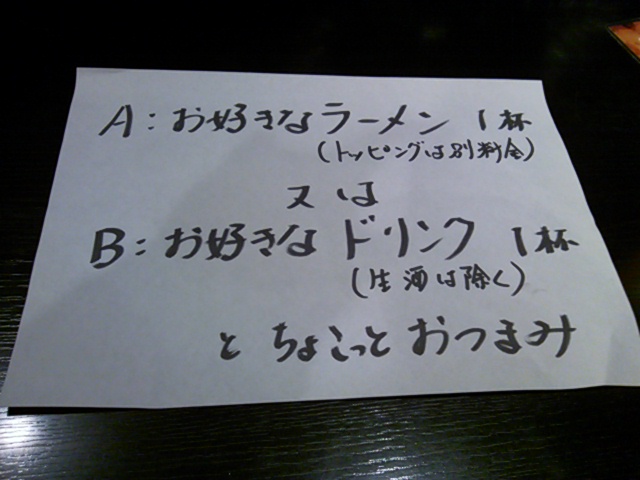 A:お好きなラーメン 1杯
(トッピングは別料金)
又は
B:お好きなドリンク 1杯
(生酒は除く)
とちょこっとおつまみ